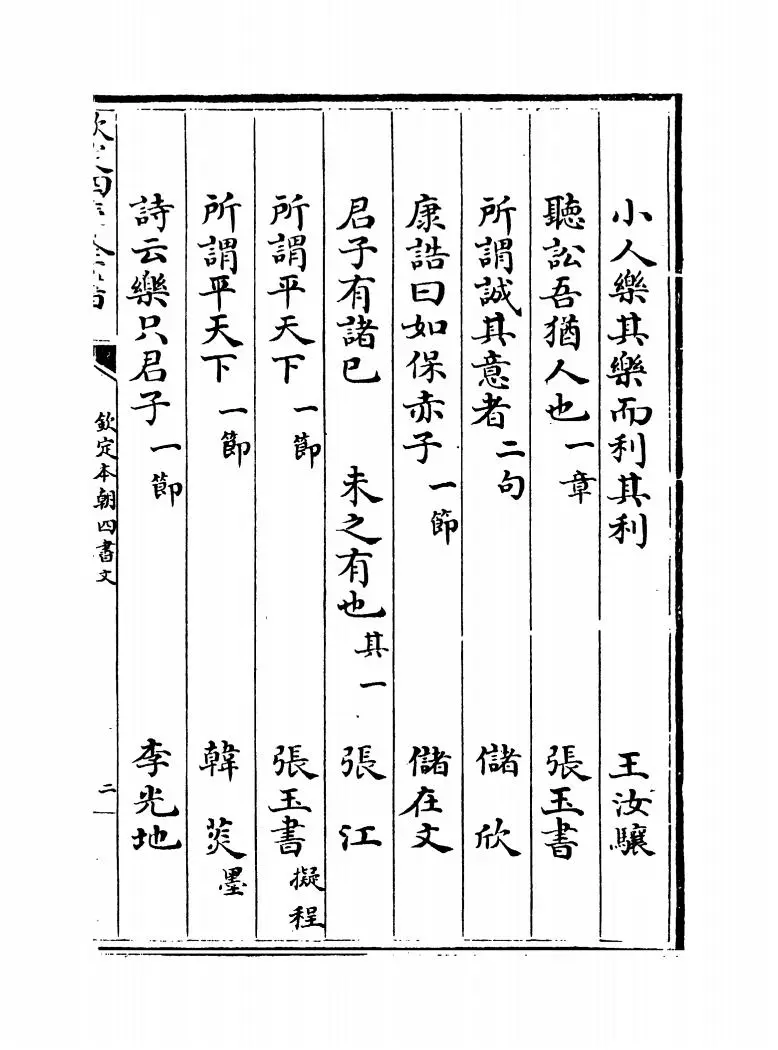 小人樂其樂而利其利 王汝驤
聽訟吾猶人也 一章 張玉書
所謂誠其意者 二句 儲欣
康誥曰如保赤子 一節 儲在文
君子有諸己 未之有也 其一 張江
所謂平天下 一節 張玉書 擬程
所謂平天下 一節 韓菼 墨
詩云樂只君子 一節 李光地
欽定四庫全書
欽定本朝四書文
二